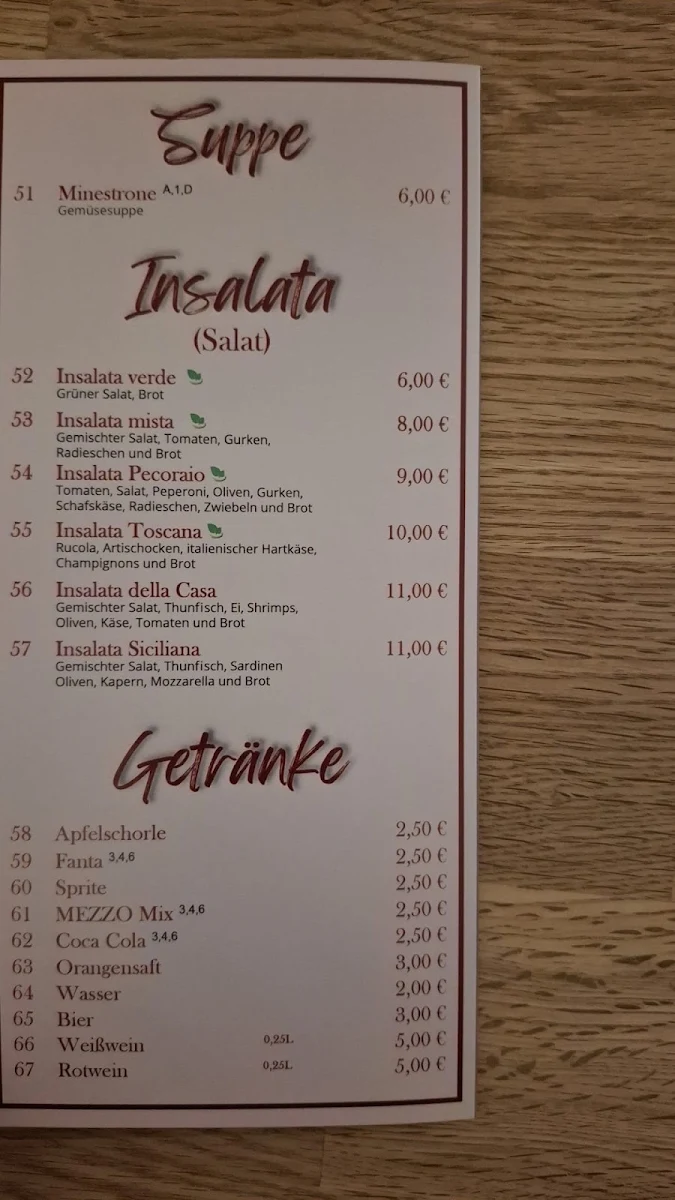 Suppe
51 Minestrone A,1,D 6,00 €
Gemüsesuppe
Insalata
(Salat)
52 Insalata verde 6,00 €
Grüner Salat, Brot
53 Insalata mista 8,00 €
Gemischter Salat, Tomaten, Gurken,
Radieschen und Brot
54 Insalata Pecoraio 9,00 €
Tomaten, Salat, Peperoni, Oliven, Gurken,
Schafskäse, Radieschen, Zwiebeln und Brot
55 Insalata Toscana 10,00 €
Rucola, Artischocken, italienischer Hartkäse,
Champignons und Brot
56 Insalata della Casa 11,00 €
Gemischter Salat, Thunfisch, Ei, Shrimps,
Oliven, Käse, Tomaten und Brot
57 Insalata Siciliana 11,00 €
Gemischter Salat, Thunfisch, Sardinen
Oliven, Kapern, Mozzarella und Brot
Getränke
58 Apfelschorle 2,50 €
59 Fanta 3,4,6 2,50 €
60 Sprite 2,50 €
61 MEZZO Mix 3,4,6 2,50 €
62 Coca Cola 3,4,6 2,50 €
63 Orangensaft 3,00 €
64 Wasser 2,00 €
65 Bier 3,00 €
66 Weißwein 0,25L 5,00 €
67 Rotwein 0,25L 5,00 €